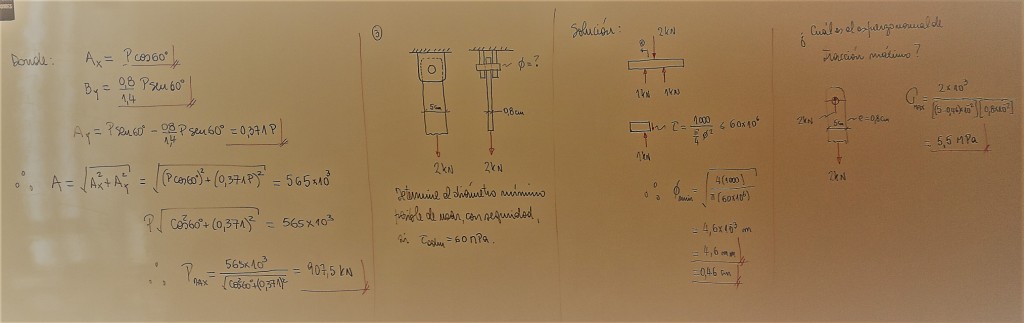 Donde: Ax = Pcos60°
By = 0,8/1,4 Psen60°
Ay = Psen60° - 0,8/1,4 Psen60° = 0,371P
∴ A = √(Ax² + Ay²) = √((Pcos60°)² + (0,371P)²) = 565x10³
P√(cos²60° + (0,371)²) = 565x10³
∴ Pmax = 565x10³/√(cos²60°+(0,371)²) = 907,5 kN
3
φ=?
5cm
0,8cm
2kN 2kN
Determine el diámetro mínimo
posible de usar, con seguridad,
si τadm = 60 MPa.
Solución:
2kN
1kN 1kN
τ = 1000/(π/4 φ²) ≤ 60x10⁶
1kN
∴ φmin = √(4(1000)/π(60x10⁶))
= 4,6x10⁻³ m
= 4,6 mm
= 0,46 cm
¿Cuál es el esfuerzo normal de
tracción máximo?
2kN
5cm
e=0,8cm
2kN
σmax = 2x10³/[(5-0,46)x10⁻²][0,8x10⁻²]
= 5,5 MPa